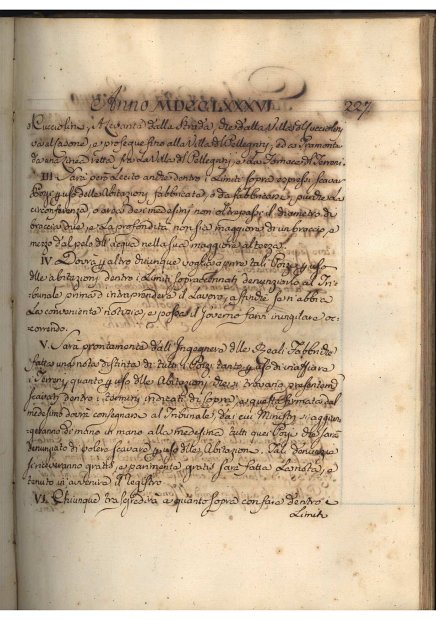 Anno MDCCLXXXVI. 227
o Cucciolino, A Levante dalla Strada, che dalla Villa di Cucciolino
va al Casone, e prosegue fino alla Villa di Pellegrini, e da Tramontana
da una linea retta fra la Villa di Pellegrini, e la Fornace di
III. Sarà però Lecito anche dentro i Limiti sopra espressi scavar
Pozzi per uso delle Abitazioni fabbricate, o da fabbricarsi, purchè la
circonferenza o area dei medesimi non oltrepassi il diametro di
braccia due, e La profondità non sia maggiore di un braccio e
mezzo dal pelo dell'acqua nella sua maggiore altezza.
IV. Dovrà per altro chiunque voglia aprire tali Pozzi per uso
delle abitazioni dentro i Limiti sopraccennati denunziarlo al Tri-
bunale prima d'intraprendere il Lavoro, affinchè se n'abbia
La conveniente notizia, e possa il Governo farvi invigilare oc-
correndo.
V. Sarà prontamente dall'Ingegnere delle Reali Fabbriche
fatta una nota distinta di tutti i Pozzi tanto per uso di inaffiare
i Terreni, quanto per uso delle Abitazioni che si trovano presentemente
scavati dentro i termini indicati di sopra, e questa firmata dal
medesimo dovrà consegnarsi al Tribunale, dai cui Ministri si aggiun-
geranno di mano in mano alla medesima tutti quei Pozzi che sarà
denunziato di volere scavare per uso delle Abitazioni. Tali denunzie
si riceveranno gratis, e parimente gratis sarà fatta La nota, e
tenuto in avvenire il registro
VI. Chiunque trasgredirà a quanto sopra con fare dentro i
Limiti